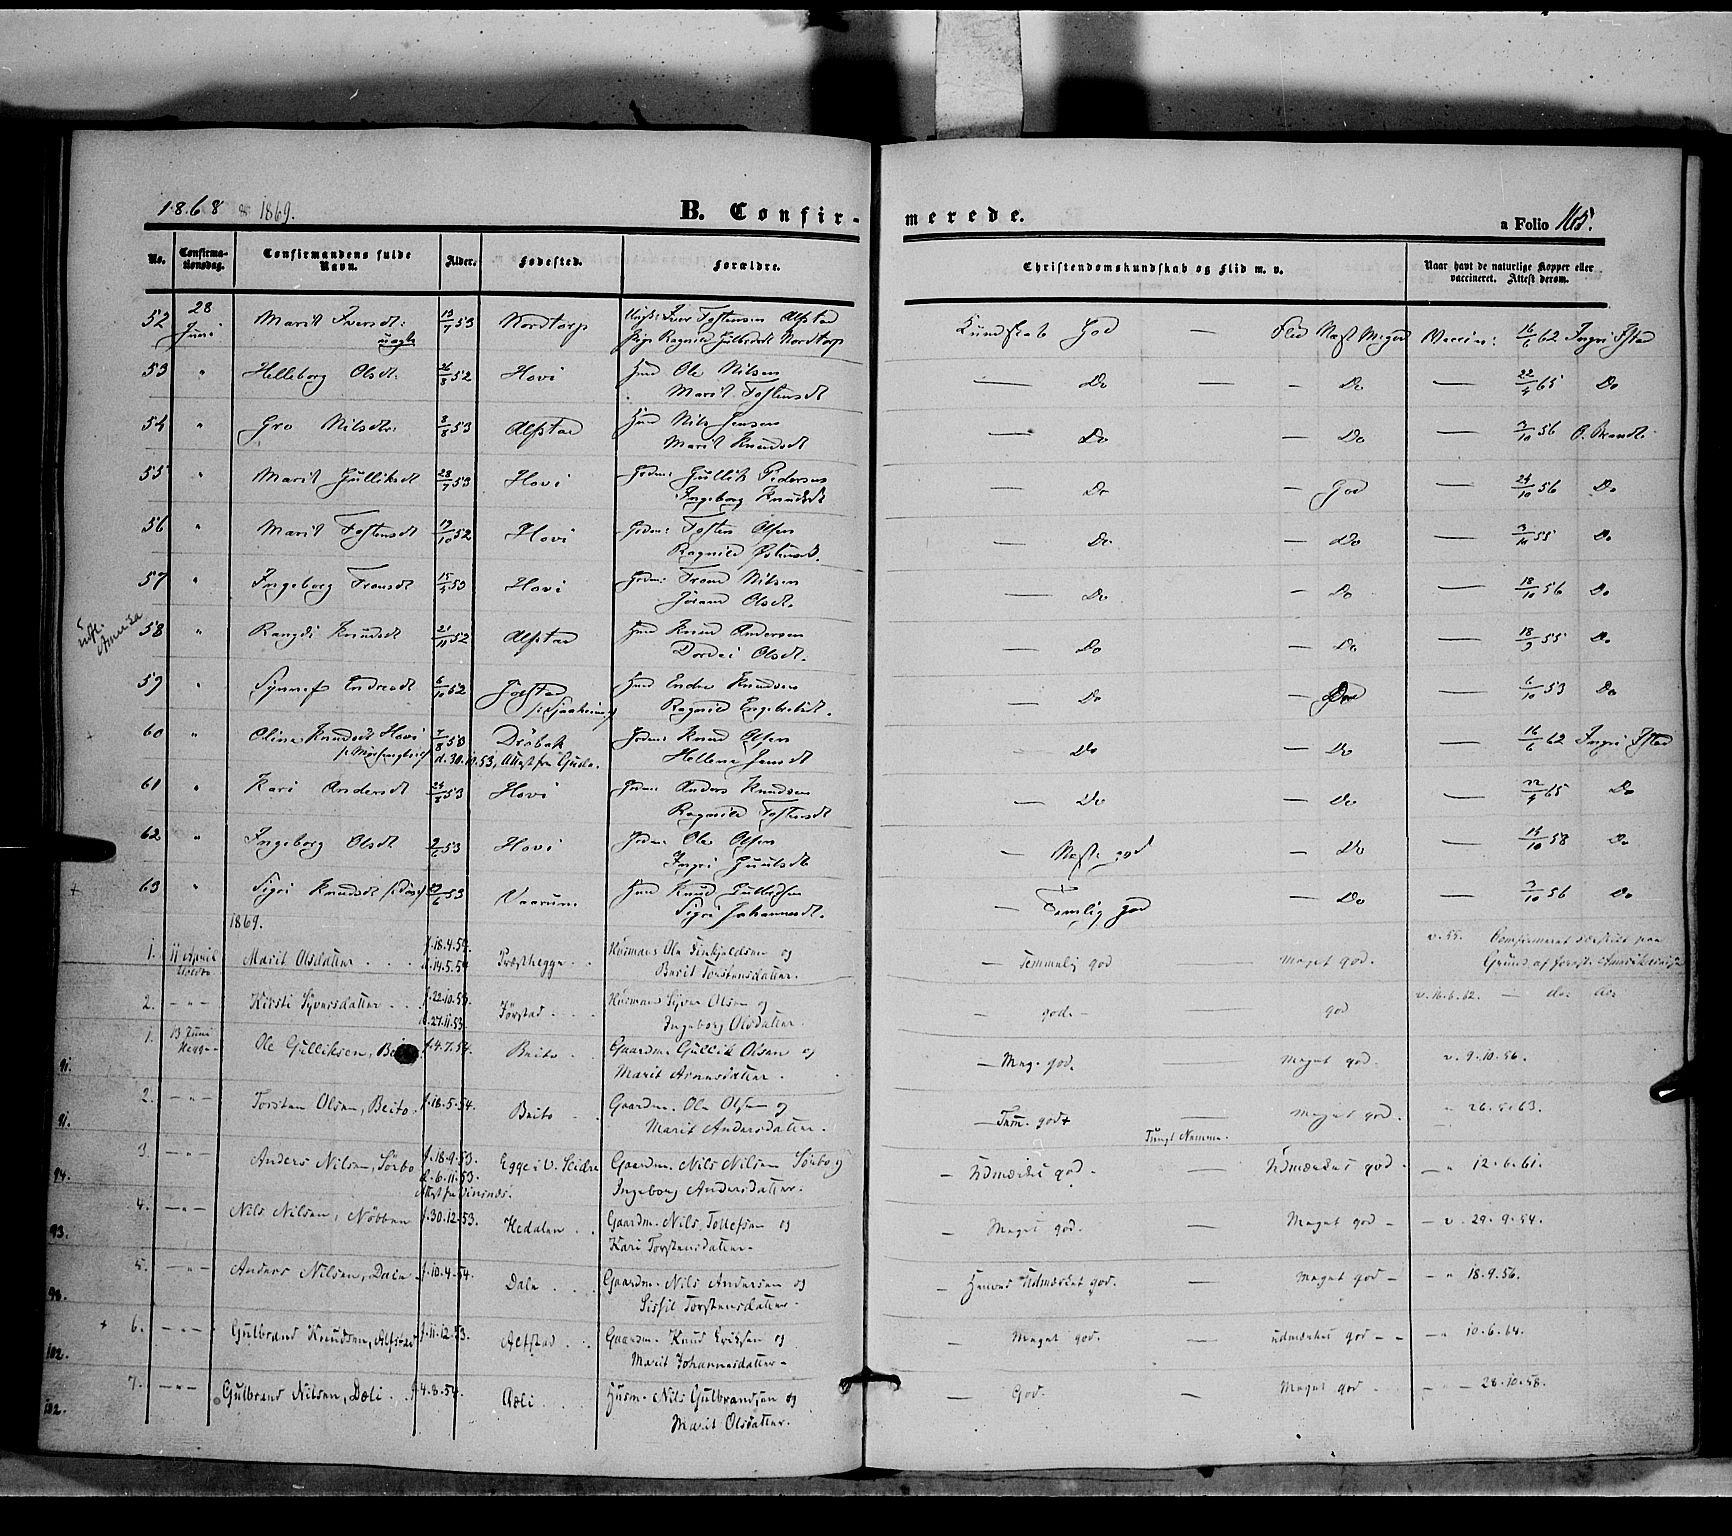 1868 & 1869.
B. Confir-
merede.
a Folio 165.
No. Confirma-tionsdag. Confirmandens fulde Navn. Alder. Fødested. Forældre. Christendomskundskab og Flid m. v. Naar havt de naturlige Kopper eller vaccineret. Attest derom.
52 28 Juni Marit Iversdt: uægte 13/7 53 Nordtorp Ungk: Iver Tostensen Alfstad Pige Ragnild Gulbrdt Nordtorp Kundskab God — Flid Næst M. god Vaccin: 16/6 62 Ingri Ystad
53 " Helleborg Olsdt: 26/8 52 Hovi Hmd Ole Nilsen Marit Tostensdt — Do — — Do — 22/4 65 Do
54 " Gro Nilsdtr: 8/8 53 Alfstad Hmd Nils Jensen Marit Knudsdt — Do — Do — 3/10 56 O. Brandt
55 " Marit Gulliksdt 28/7 53 Hovi Grdm: Gullik Pedersen Ingeborg Knudsdt — Do — God — 24/10 56 Do
56 " Marit Tostensdt 19/10 52 Hovi Grdm: Tosten Olsen Ragnild — Do — Do — 55 Do
57 " Ingeborg Tronsdt 15/4 53 Hovi Grdm: Trond Nilsen Jørand Olsdt. — Do — Do — 18/10 56 Do
Amerika
58 " Rangdi Knudsdt 21/11 52 Alfstad Hmd Knud Andersen Dordei Olsdt. — Do — Do — 18/9 55 Do
59 " Synnef Endresdt 6/10 52 Hmd Endre Knudsen Ragnild Engebretsdt. — Do — — 6/10 53 Do
60 " Oline Knudsdt Hovi 7/8 53 Drøbak Grdm: Knud Olsen
d. 30.10.53, Attest fra Hellene Jensdt — Do — Do — 16/6 62 Ingri Ystad
61 " Kari Andersdt 24/8 53 Hovi Grdm: Anders Knudsen Ragnild Tostensdt — Do — Do — 22/4 65 Do
62 " Ingeborg Olsdt 2/6 53 Hovi Grdm: Ole Olsen Ingri Guulsdt — Næst. god — Do — 15/10 58 Do
63 " Sigri Knudsdt 53 Vaarum Hmd Knud Sigri Johannesdt. — Temlig god — Do — 3/10 56 Do
1869.
1. 11 April Marit Olsdatter . . . f. 18.4.54. d. 14.5.54 Præsthegge . . Husmand Ole og Berit Torstensdatter. — Temmelig god — Meget god. v. 55. Confirmeret særskilt paa Grund af forest. Amerikareise
2. — " — Kirsti Syversdatter . . f. 22.10.53 d. 27.11.53 Jørstad . . . Husmand Syver Olsen og Ingeborg Olsdatter. — god. — — god v. 16.6.62. — do: do:
91. 1. 13 Juni Hegge Ole Gulliksen, Beito f. 4.7.54. Beito . . Gaardm. Gullik Olsen og Marit Arnesdatter. — Meg. god. Meget god. v. 9.10.56.
91. 2. — " — Torsten Olsen, Beito. f. 18.5.54. Beito . . Gaardm. Ole Olsen og Marit Andersdatter. — Tem. god + — Meget god. " 26.5.63.
Tungt Nemme.
94. 3. — " — Anders Nilsen, Sørbo f. 18.9.53. d. 6.11.53. Egge i V. Slidre Gaardm. Nils Nilsen Sørbo og Ingeborg Andersdatter. — Udmærket god. — Udmærket god. — " 12.6.61.
93. 4. — " — Nils Nilsen, Nøbben f. 30.12.53. Hedalen . . Gaardm. Nils Tollefsen og Kari Torstensdatter. — Meget god. — Meget god — — v. 29.9.54.
98. 5. — " — Anders Nilsen, Dale f. 10.4.54. Dale . . . Gaardm. Nils Andersen og Sissil Torstensdatter. — Henved Udmærket god. — Meget god — — " 18.9.56.
102. + 6. — " — Gulbrand Knudsen, Alfstad f. 11.12.53. Alfstad . . . Gaardm. Knud Eriksen og Marit Johannesdatter. — Meget god. — udmærket god — — — " 10.6.64.
102. 7. — " — Gulbrand Nilsen, Dæli . . f. 4.8.54. Dæli . . . Husm. Nils Gulbrandsen og Marit Olsdatter. — God. — Meget god — " — 28.10.58.